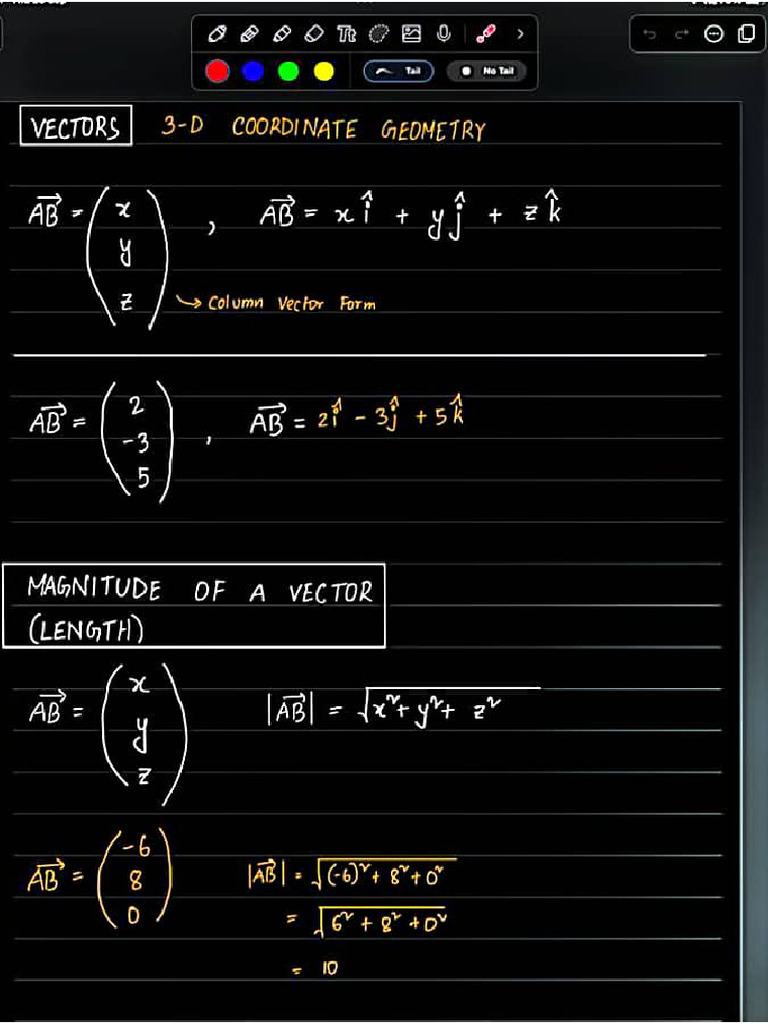 Tt
Tail
No Tail
VECTORS 3-D COORDINATE GEOMETRY
AB⃗ = (x y z) , AB⃗ = x î + y ĵ + z k̂
↳ Column Vector Form
AB⃗ = (2 -3 5) , AB⃗ = 2î - 3ĵ + 5k̂
MAGNITUDE OF A VECTOR
(LENGTH)
AB⃗ = (x y z) |AB⃗| = √(x² + y² + z²)
AB⃗ = (-6 8 0) |AB⃗| = √((-6)² + 8² + 0²)
= √(6² + 8² + 0²)
= 10